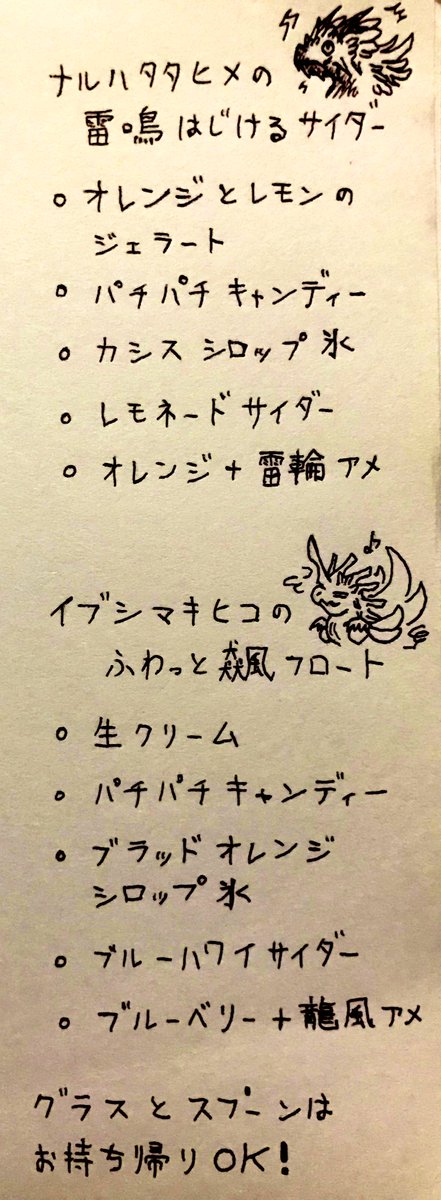 ナルハタタヒメの
雷鳴はじけるサイダー
○ オレンジとレモンの
ジェラート
○ パチパチキャンディー
○ カシスシロップ氷
○ レモネードサイダー
○ オレンジ+雷輪アメ
イブシマキヒコの
ふわっと飆風フロート
○ 生クリーム
○ パチパチキャンディー
○ ブラッドオレンジ
シロップ氷
○ ブルーハワイサイダー
○ ブルーベリー+龍風アメ
グラスとスプーンは
お持ち帰りOK!